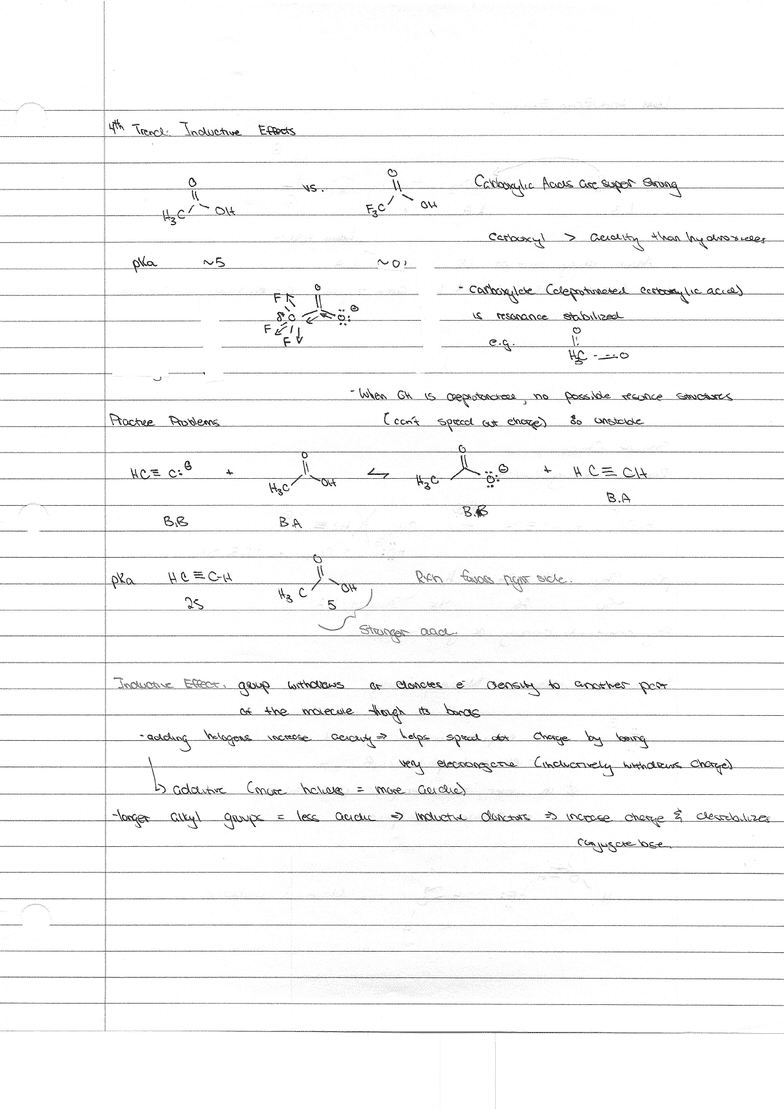 4th Trend: Inductive Effects
O O Carboxylic Acids are super strong
H₃C OH vs. F₃C OH
carboxyl > acidity than hydroxides
pKa ~5 ~0
- Carboxylate (deprotonated carboxylic acid)
F O
δ⊕ O ⊖ is resonance stabilized
F
F e.g. O
H₃C O
- When OH is deprotonated, no possible resonance structures
Practice Problems (can't spread out charge) so unstable
HC≡C:⊖ + H₃C O OH ⇌ H₃C O O ⊖ + HC≡CH
B.B B.A B.B B.A
pKa HC≡C-H H₃C O OH Rxn favors right side.
25 5
Stronger acid.
Inductive Effect: group withdraws or donates e⁻ density to another part
of the molecule though its bonds
- adding halogens increase acidity ⇒ helps spread out charge by being
very electronegative (inductively withdraws charge)
↳ additive (more halides = more acidic)
- larger alkyl groups = less acidic ⇒ inductive donators ⇒ increase charge & destabilizes
conjugate base.